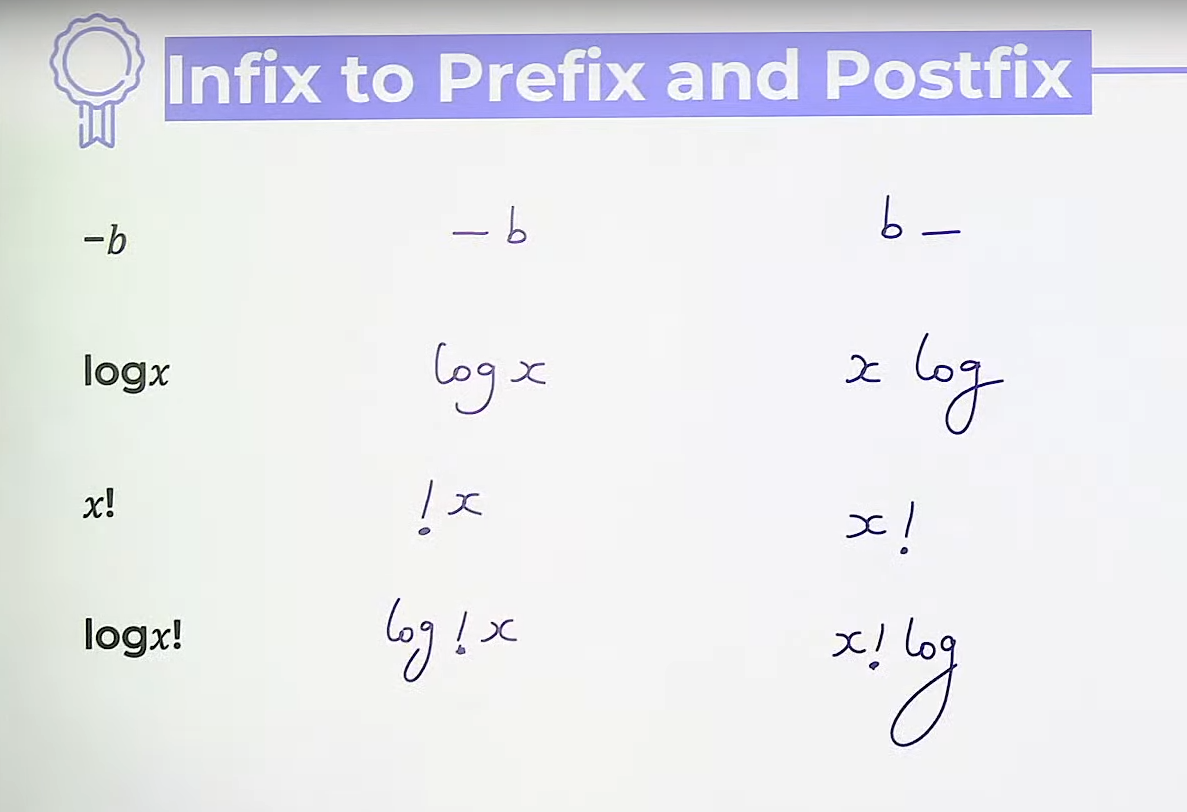 Infix to Prefix and Postfix
-b – b b –
logx log x x log
x! ! x x !
logx! log ! x x ! log